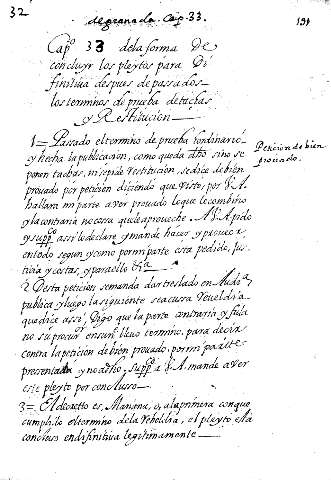 32
de granada. Cap. 33.
191
Capº 33 de la forma De
concluyr los pleytos para Di
finitiua despues de passados
los terminos de prueba de tachas
y Restitucion
1 = Passado el termino de prueba Hordinario
y hecha la publicacion, como queda dho, sino se
ponen tachas, ni se pide Restitucion, se dice de bien
prouado por peticion diciendo que Visto, por V. A.
hallara mi parte auer prouado lo que le combino
y la contraria no cossa que le aproueche. A V. A. pido
y suppco assi lo declare y mande hacer, y prouea
en todo segun y como por mi parte esta pedido, Jus
ticia y costas, y para ello &a
Peticion de bien
prouado.
2 Desta peticion se manda dar treslado en Audª
publica y luego la siguiente se acusa Reueldia
que dice assi, Digo que la parte contraria y fulº
su procurºr en su nº lleuo termino, para decir
contra la peticion de bien prouado, por mi parte
presentada y no a dho, suppco a V. A. mande auer
este pleyto por conclusso
3 = El decretto es, Mañana, o, a la primera con que
cumplido el termino de la Rebeldia, el pleyto esta
concluso en difinitiua legitimamente